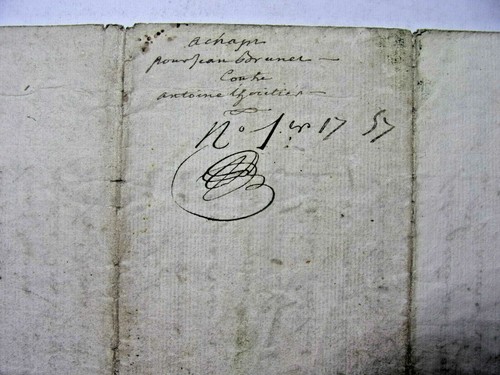 achapt
pour Jean Brunet
Contre
antoine
No. 1er 1757